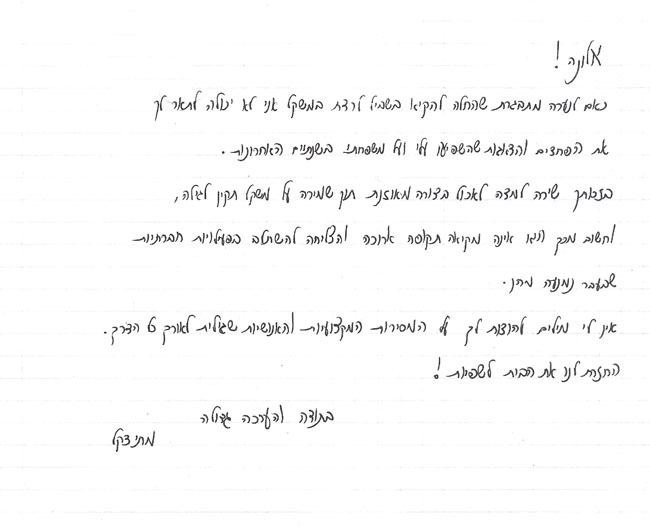 אלונה!
כאם לנערה מתבגרת שהחלה להקיא בשביל לרדת במשקל אני לא יכולה לתאר לך
את הפחדים והדאגות שהשפיעו עלי ועל משפחתי בשנתיים האחרונות.
בזכותך שירה למדה לאכול בצורה מאוזנת תוך שמירה על משקל תקין לגילה,
וחשוב מכך היא אינה מקיאה תקופה ארוכה והצליחה להשתלב בפעילויות חברתיות
שבעבר נמנעה מהן.
אין לי מילים להודות לך על המסירות המקצועיות והאנושיות שגילית לאורך כל הדרך.
החזרת לנו את הבית לשפיות!
בתודה והערכה גדולה